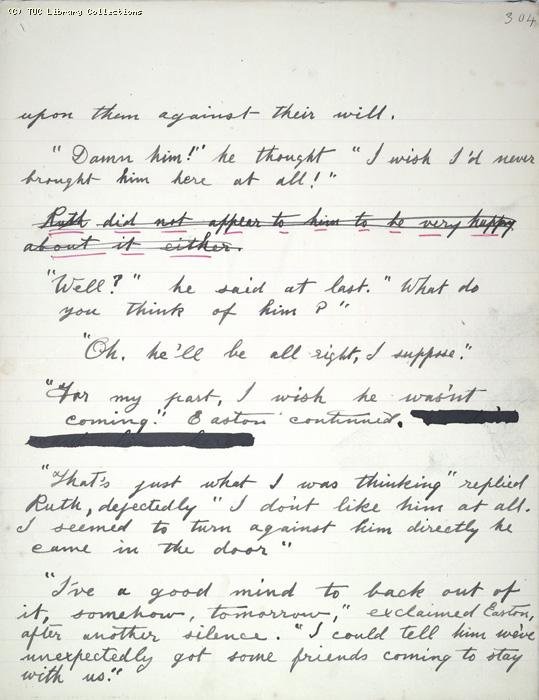 (C) TUC Library Collections
304
upon them against their will.
"Damn him!" he thought "I wish I'd never
brought him here at all!"
Ruth did not appear to him to be very happy
about it either.
"Well?" he said at last. "What do
you think of him?"
"Oh, he'll be all right, I suppose."
"For my part, I wish he wasn't
coming." Easton continued.
"That's just what I was thinking" replied
Ruth, dejectedly "I dont like him at all.
I seemed to turn against him directly he
came in the door"
"I've a good mind to back out of
it, somehow, tomorrow," exclaimed Easton,
after another silence. "I could tell him we've
unexpectedly got some friends coming to stay
with us."